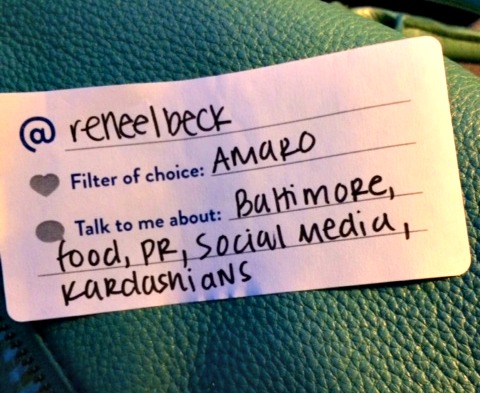 @ reneelbeck
Filter of choice: AMARO
Talk to me about: Baltimore,
food, PR, Social Media,
Kardashians